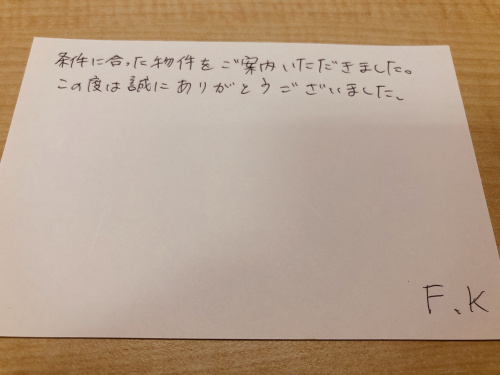 条件に合った物件をご案内いただきました。
この度は誠にありがとうございました、
F、K